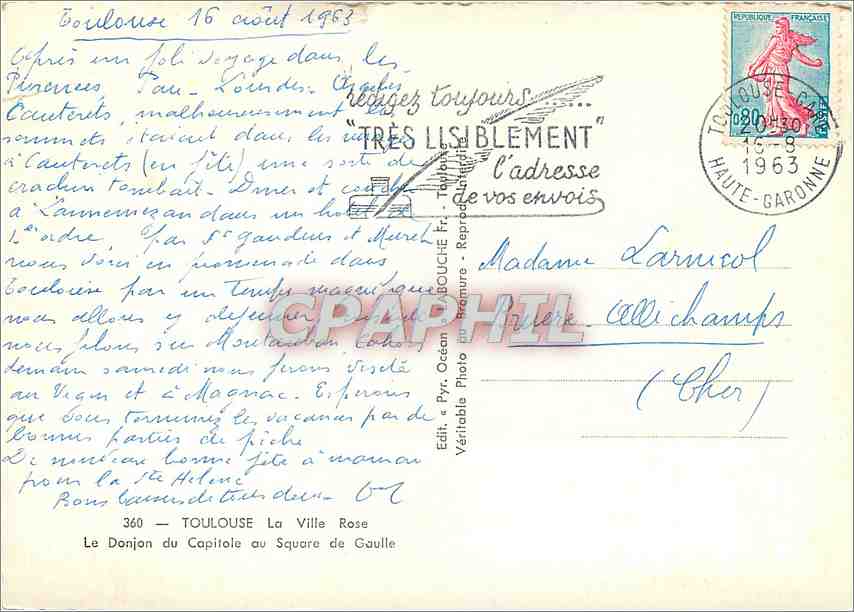 Toulouse 16 août 1963
Après un joli voyage dans les
Pyrénées, Pau - Lourdes - Argelès
Cauterets, malheureusement les
sommets étaient dans les nuages
à Cauterets (en fête) une sorte de
crachin tombait - Diner et couché
à Lannemezan dans un hotel de
1er ordre, par St Gaudens et Muret
nous voici en promenade dans
Toulouse par un temps magnifique
nous allons y déjeuner ensuite
nous filons sur Montauban, Cahors
demain samedi nous ferons visite
au Vigan et à Magnac. Espérons
que vous terminez les vacances par de
bonnes parties de pêche
De nouveau bonne fête à maman
pour la Ste Hélène
Bons baisers de tous deux -
360 — TOULOUSE La Ville Rose
Le Donjon du Capitole au Square de Gaulle
Edit. « Pyr. Océan » LABOUCHE Fr., Toulouse
Véritable Photo au Bromure - Reproduction Interdite
rédigez toujours...
"TRÈS LISIBLEMENT"
l'adresse
de vos envois
REPUBLIQUE FRANÇAISE
0,20
POSTES
TOULOUSE-GARE
20H30
16-8
1963
HAUTE-GARONNE
Madame Larnicol
Bruère-Allichamps
(Cher)
CPAPHIL